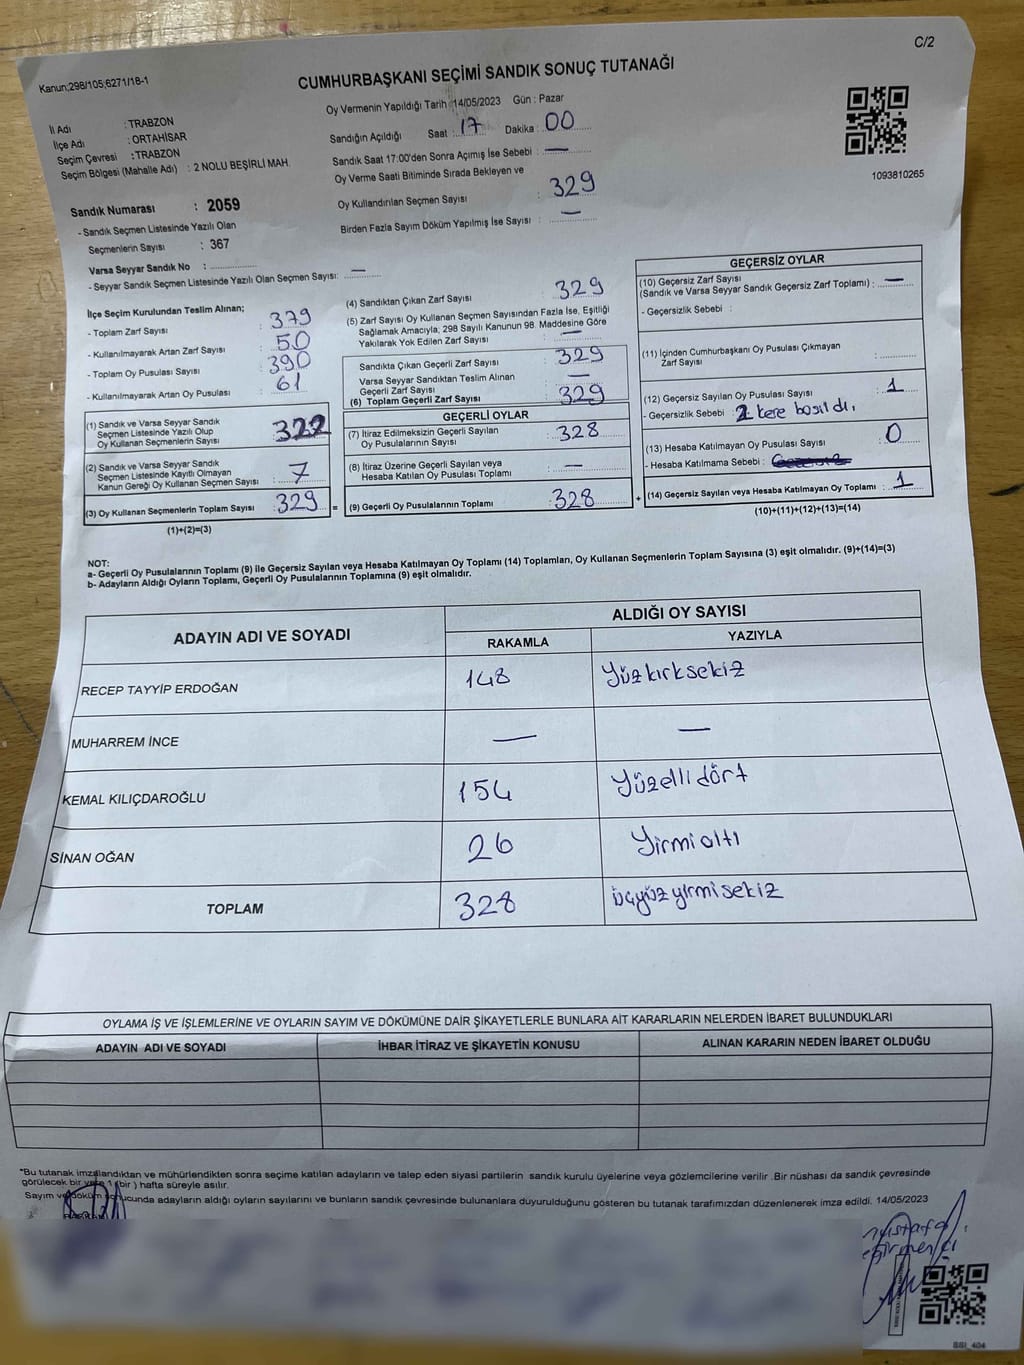 C/2
Kanun;298/105;6271/18-1
CUMHURBAŞKANI SEÇİMİ SANDIK SONUÇ TUTANAĞI
Oy Vermenin Yapıldığı Tarih :14/05/2023 Gün : Pazar
İl Adı : TRABZON
İlçe Adı : ORTAHİSAR
Seçim Çevresi : TRABZON
Seçim Bölgesi (Mahalle Adı) : 2 NOLU BEŞİRLİ MAH.
Sandık Numarası : 2059
- Sandık Seçmen Listesinde Yazılı Olan
Seçmenlerin Sayısı : 367
Varsa Seyyar Sandık No :
- Seyyar Sandık Seçmen Listesinde Yazılı Olan Seçmen Sayısı: —
Sandığın Açıldığı Saat : 17 Dakika : 00
Sandık Saat 17:00'den Sonra Açımış İse Sebebi : —
Oy Verme Saati Bitiminde Sırada Bekleyen ve
Oy Kullandırılan Seçmen Sayısı : 329
Birden Fazla Sayım Döküm Yapılmış İse Sayısı : —
1093810265
İlçe Seçim Kurulundan Teslim Alınan;
- Toplam Zarf Sayısı : 379
- Kullanılmayarak Artan Zarf Sayısı : 50
- Toplam Oy Pusulası Sayısı : 390
- Kullanılmayarak Artan Oy Pusulası : 61
(1) Sandık ve Varsa Seyyar Sandık
Seçmen Listesinde Yazılı Olup
Oy Kullanan Seçmenlerin Sayısı : 322
(2) Sandık ve Varsa Seyyar Sandık
Seçmen Listesinde Kayıtlı Olmayan
Kanun Gereği Oy Kullanan Seçmen Sayısı : 7
(3) Oy Kullanan Seçmenlerin Toplam Sayısı : 329 =
(1)+(2)=(3)
(4) Sandıktan Çıkan Zarf Sayısı : 329
(5) Zarf Sayısı Oy Kullanan Seçmen Sayısından Fazla İse, Eşitliği
Sağlamak Amacıyla; 298 Sayılı Kanunun 98. Maddesine Göre
Yakılarak Yok Edilen Zarf Sayısı : —
Sandıkta Çıkan Geçerli Zarf Sayısı : 329
Varsa Seyyar Sandıktan Teslim Alınan
Geçerli Zarf Sayısı : —
(6) Toplam Geçerli Zarf Sayısı : 329
GEÇERLİ OYLAR
(7) İtiraz Edilmeksizin Geçerli Sayılan
Oy Pusulalarının Sayısı : 328
(8) İtiraz Üzerine Geçerli Sayılan veya
Hesaba Katılan Oy Pusulası Toplamı : —
(9) Geçerli Oy Pusulalarının Toplamı : 328 +
GEÇERSİZ OYLAR
(10) Geçersiz Zarf Sayısı
(Sandık ve Varsa Seyyar Sandık Geçersiz Zarf Toplamı) : —
- Geçersizlik Sebebi :
(11) İçinden Cumhurbaşkanı Oy Pusulası Çıkmayan
Zarf Sayısı :
(12) Geçersiz Sayılan Oy Pusulası Sayısı : 1
- Geçersizlik Sebebi : 2 kere basıldı,
(13) Hesaba Katılmayan Oy Pusulası Sayısı : 0
- Hesaba Katılmama Sebebi :
(14) Geçersiz Sayılan veya Hesaba Katılmayan Oy Toplamı : 1
(10)+(11)+(12)+(13)=(14)
NOT:
a- Geçerli Oy Pusulalarının Toplamı (9) ile Geçersiz Sayılan veya Hesaba Katılmayan Oy Toplamı (14) Toplamları, Oy Kullanan Seçmenlerin Toplam Sayısına (3) eşit olmalıdır. (9)+(14)=(3)
b- Adayların Aldığı Oyların Toplamı, Geçerli Oy Pusulalarının Toplamına (9) eşit olmalıdır.
ADAYIN ADI VE SOYADI ALDIĞI OY SAYISI
RAKAMLA YAZIYLA
RECEP TAYYİP ERDOĞAN 148 Yüzkırksekiz
MUHARREM İNCE — —
KEMAL KILIÇDAROĞLU 154 Yüzellidört
SİNAN OĞAN 26 Yirmialtı
TOPLAM 328 üçyüzyirmisekiz
OYLAMA İŞ VE İŞLEMLERİNE VE OYLARIN SAYIM VE DÖKÜMÜNE DAİR ŞİKAYETLERLE BUNLARA AİT KARARLARIN NELERDEN İBARET BULUNDUKLARI
ADAYIN ADI VE SOYADI İHBAR İTİRAZ VE ŞİKAYETİN KONUSU ALINAN KARARIN NEDEN İBARET OLDUĞU
*Bu tutanak imzalandıktan ve mühürlendikten sonra seçime katılan adayların ve talep eden siyasi partilerin sandık kurulu üyelerine veya gözlemcilerine verilir .Bir nüshası da sandık çevresinde
görülecek bir yere 1 (bir ) hafta süreyle asılır.
Sayım ve döküm sonucunda adayların aldığı oyların sayılarını ve bunların sandık çevresinde bulunanlara duyurulduğunu gösteren bu tutanak tarafımızdan düzenlenerek imza edildi. 14/05/2023